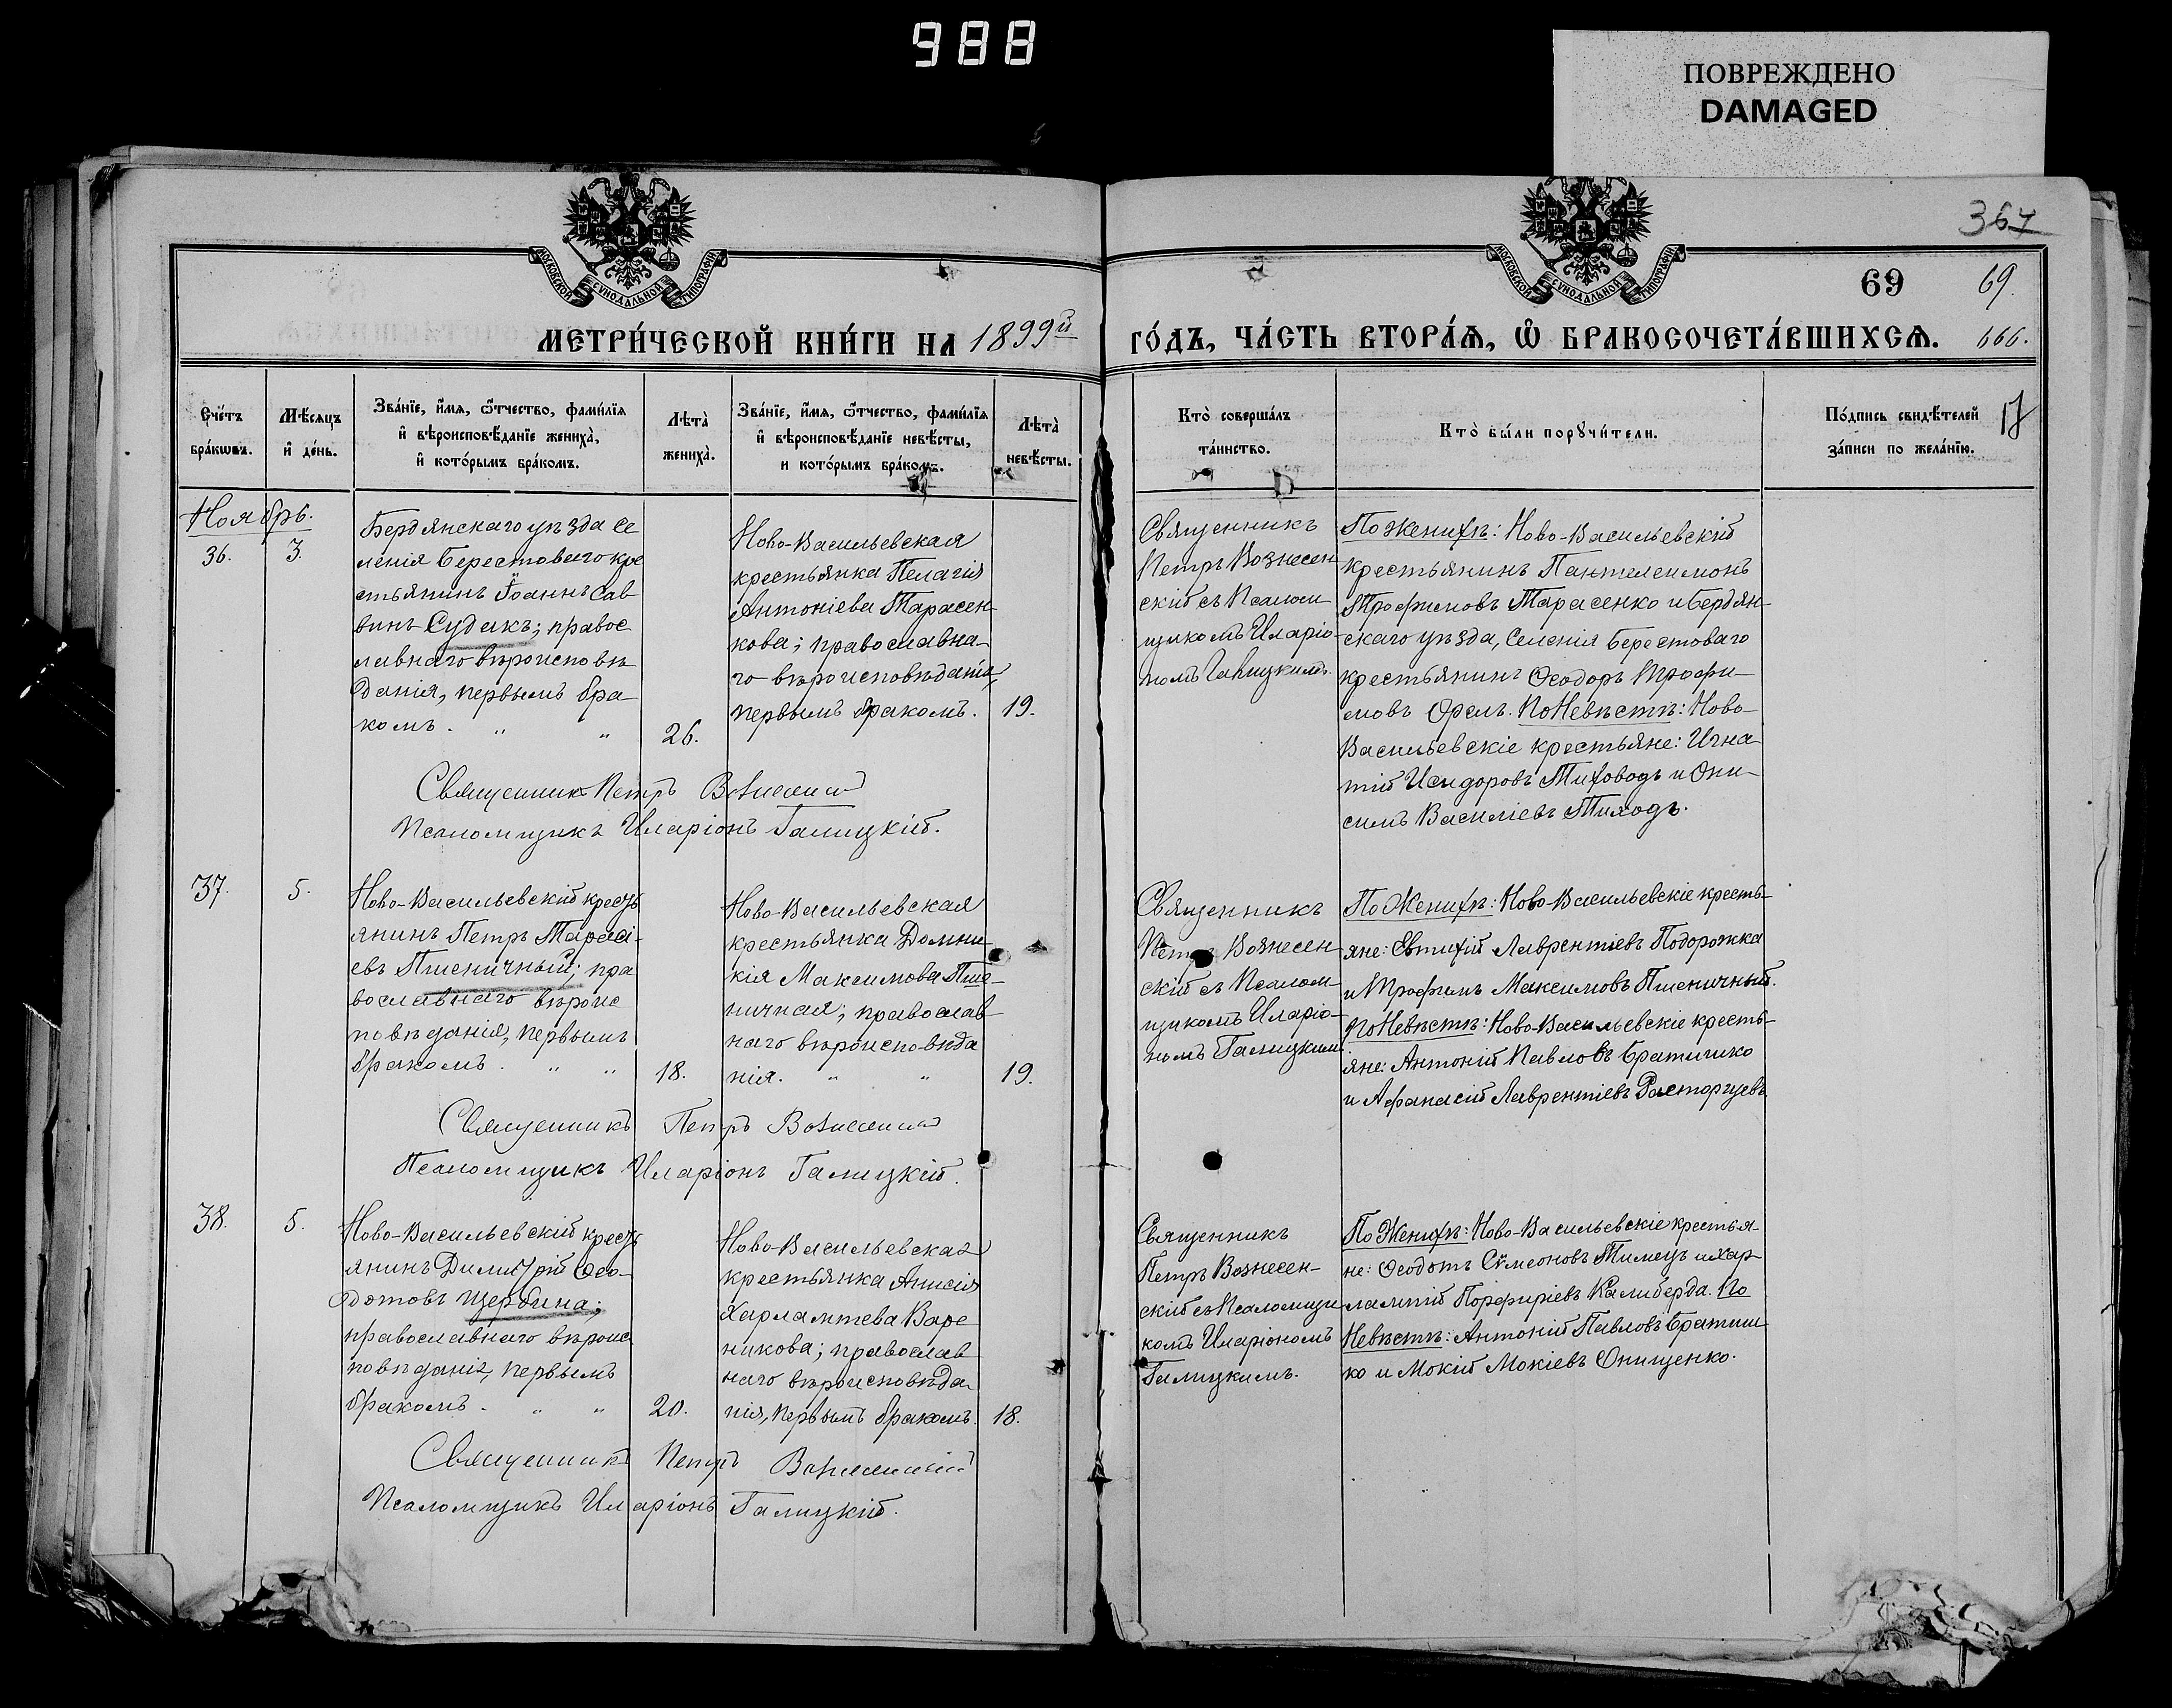 988
ПОВРЕЖДЕНО
DAMAGED
367
МОСКОВСКОЙ СУНОДАЛЬНОЙ ТИПОГРАФІИ.
МОСКОВСКОЙ СУНОДАЛЬНОЙ ТИПОГРАФІИ.
69
69.
МЕТРИ́ЧЕСКОЙ КНИ́ГИ НА 1899й
ГО́ДЪ, ЧА́СТЬ ВТОРА́Ѧ, Ѽ БРАКОСОЧЕТА́ВШИХСѦ.
166.
Счéтъ
брáкѡвъ.
Мѣ́сяцъ
и҆ дéнь.
Звáнїе, и҆́мя, ѻ҆́тчество, фамѝлїя
и҆ вѣроисповѣ́данїе женихà,
и҆ котóрымъ брáкомъ.
Лѣтà
женихà.
Звáнїе, и҆́мя, ѻ҆́тчество, фамѝлїя
и҆ вѣроисповѣ́данїе невѣ́сты,
и котóрымъ брáкомъ.
Лѣтà
невѣ́сты.
Ктò совершáлъ
тáинство.
Ктò бы́ли порꙋчи́тели.
Пóдпись свидѣ́телей
зáписи по желáнїю.
17
Ноябрь.
36.
3.
Бердянскаго уѣзда Се
ленія Берестоваго кре
стьянинъ Іоаннъ Сав
винъ Судакъ; правос
лавнаго вѣроисповѣ
данія, первымъ бра-
комъ. " "
26.
Ново-Васильевская
крестьянка Пелагія
Антоніева Тарасен-
кова; православна-
го вѣроисповѣданія,
первымъ бракомъ.
19.
Священникъ
Петръ Вознесен
скій съ Псалом
щикомъ Иларіо-
номъ Галицкимъ.
По Женихѣ: Ново-Васильевскій
крестьянинъ Пантелеимонъ
Трофимовъ Тарасенко и Бердян-
скаго уѣзда, Селенія Берестоваго
крестьянинъ Ѳеодоръ Трофи-
мовъ Орелъ. По Невѣстѣ: Ново-
Васильевскіе крестьяне: Игна-
тій Исидоровъ Тиховодъ и Они-
симъ Василіевъ Тиходъ.
Священникъ Петръ Вознесенскій
Псаломщикъ Иларіонъ Галицкій.
37.
5.
Ново-Васильевскій кресть
янинъ Петръ Тарасі-
евъ Пшеничный; пра
вославнаго вѣроис
повѣданія, первымъ
бракомъ. " "
18.
Ново-Васильевская
крестьянка Домни-
кія Максимова Пше-
ничная; православ-
наго вѣроисповѣда
нія. " "
19.
Священникъ
Петръ Вознесен
скій съ Псалом-
щикомъ Иларіо-
номъ Галицкимъ
По Женихѣ: Ново-Васильевскіе кресть-
яне: Евтихій Лаврентіевъ Подорожка
и Трофимъ Максимовъ Пшеничный.
По Невѣстѣ: Ново-Васильевскіе кресть-
яне: Антоній Павловъ Братишко
и Афанасій Лаврентіевъ Расторгуевъ
Священникъ Петръ Вознесенскій
Псаломщикъ Иларіонъ Галицкій.
38.
5.
Ново-Васильевскій кресть
янинъ Димитрій Ѳео-
дотовъ Щербина;
православнаго вѣроис
повѣданія, первымъ
бракомъ. " "
20.
Ново-Васильевская
крестьянка Анисія
Харлампіева Варе
никова; православ
наго вѣроисповѣда-
нія, первымъ бракомъ.
18.
Священникъ
Петръ Вознесен-
скій съ Псаломщи
комъ Иларіономъ
Галицкимъ.
По Женихѣ: Ново-Васильевскіе крестья-
не: Ѳеодотъ Сѵмеоновъ Тимецъ и Хар-
лампій Порфиріевъ Калиберда. По
Невѣстѣ: Антоній Павловъ Братиш-
ко и Мокій Мокіевъ Онищенко.
Священникъ Петръ Вознесенскій
Псаломщикъ Иларіонъ Галицкій.